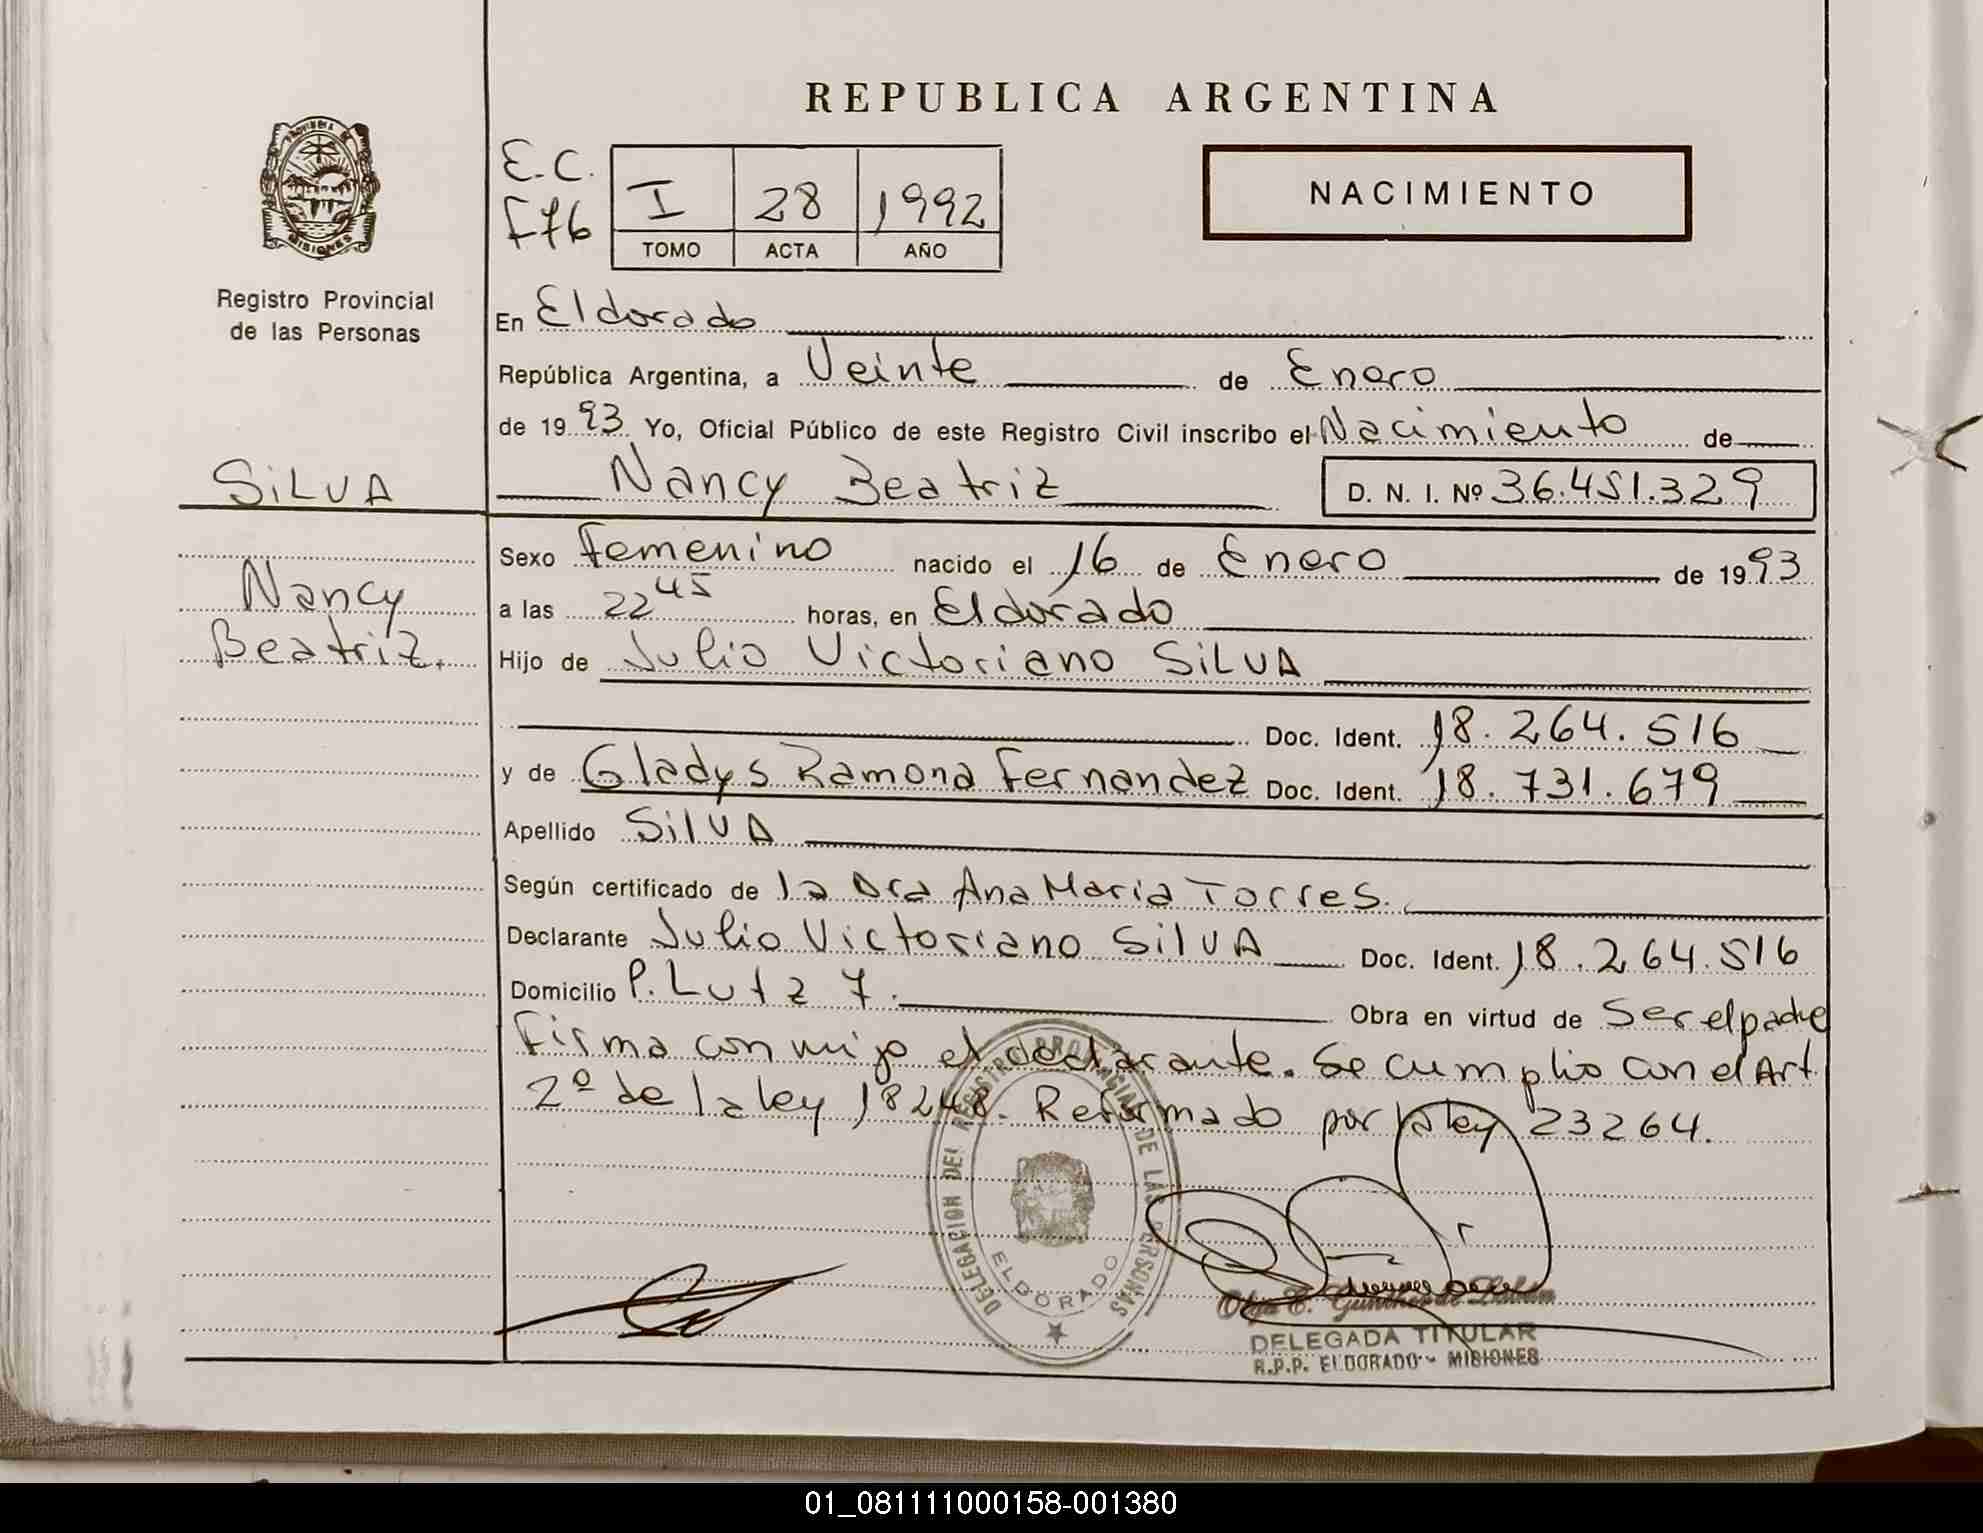 REPUBLICA ARGENTINA
PROVINCIA DE
MISIONES
Registro Provincial
de las Personas
E.C.
F76
I 28 1992
TOMO ACTA AÑO
NACIMIENTO
En Eldorado
República Argentina, a Veinte de Enero
de 1993 Yo, Oficial Público de este Registro Civil inscribo el Nacimiento de
SILVA
Nancy Beatriz D. N. I. Nº 36.451.329
Nancy
Beatriz.
Sexo Femenino nacido el 16 de Enero de 1993
a las 22 45 horas, en Eldorado
Hijo de Julio Victoriano SILVA
Doc. Ident. 18.264.516
y de Gladys Ramona Fernandez Doc. Ident. 18.731.679
Apellido SilVA
Según certificado de la Dra Ana Maria Torres.
Declarante Julio Victoriano SilVA Doc. Ident. 18.264.516
Domicilio P. Lutz 7. Obra en virtud de Ser el padre
Firma conmigo el declarante. Se cumplio con el Art
2º de la ley 18248. Reformado por la ley 23264.
DELEGACION DEL REGISTRO PROVINCIAL DE LAS PERSONAS
ELDORADO
Olga
DELEGADA TITULAR
R.P.P. ELDORADO - MISIONES
01_081111000158-001380